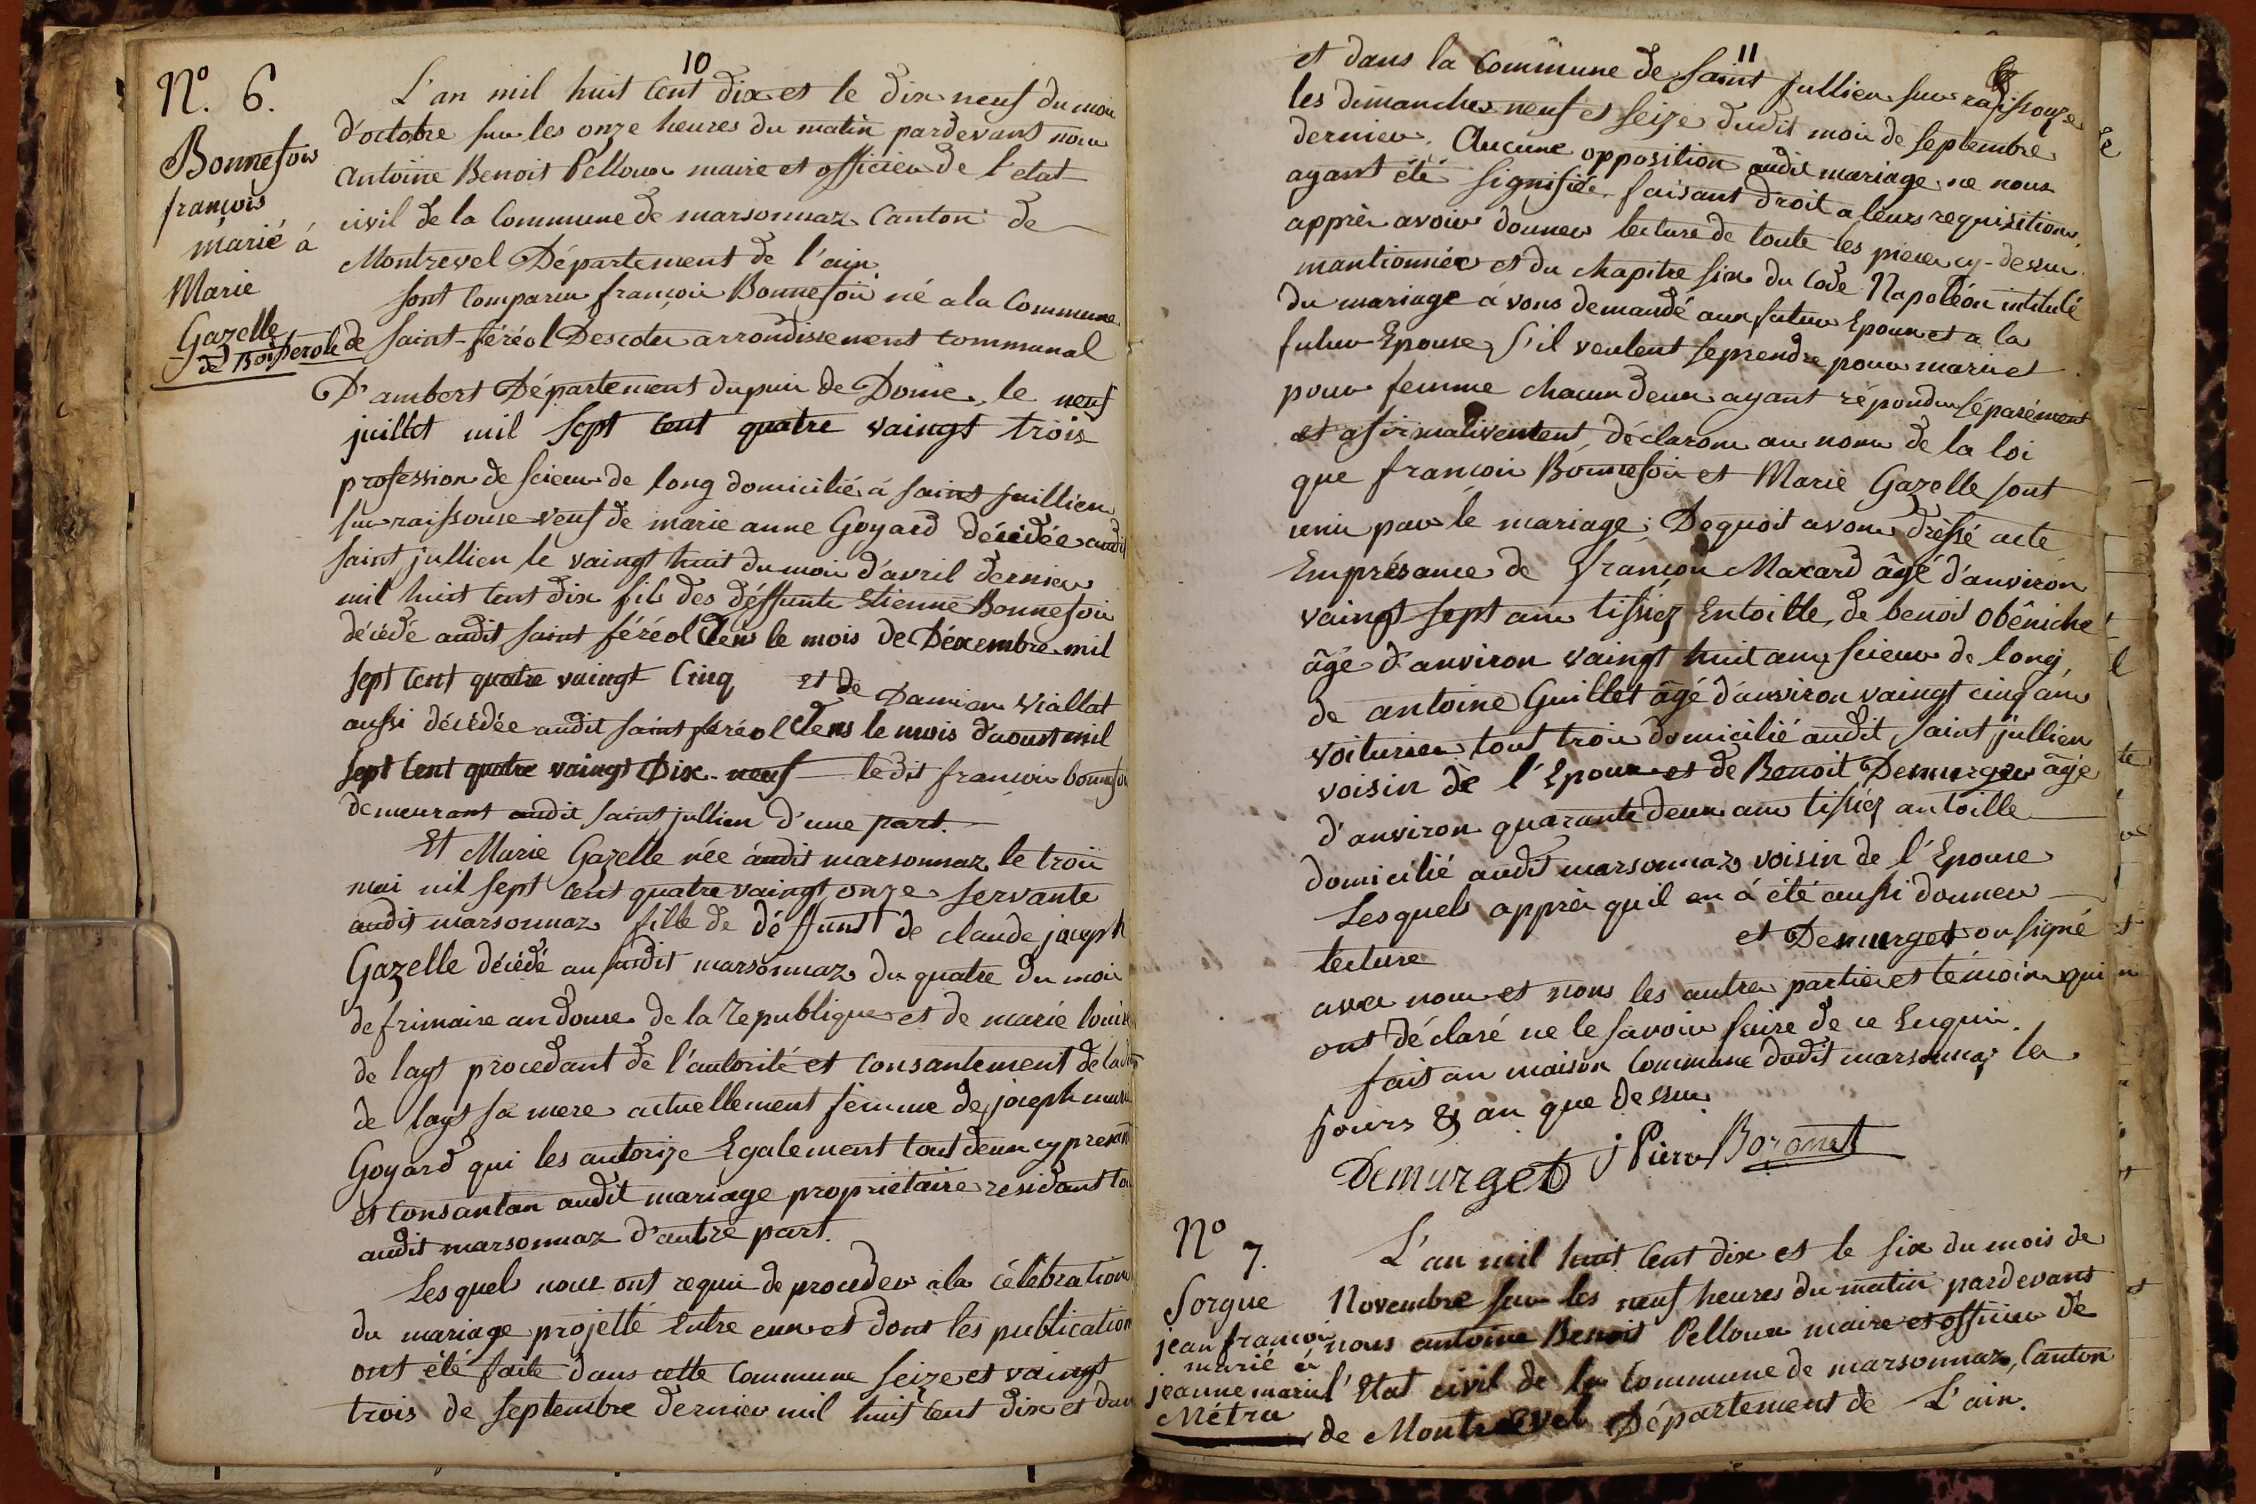 10
N.º 6.
Bonnefois
françois
marié à
Marie
Gazelle
L'an mil huit cent dix et le dix neuf du mois
d'octobre sur les onze heures du matin pardevant nous
antoine Benoit Pelloux maire et officier de l'etat
civil de la Commune de marsonnaz Canton de
Montrevel Département de l'ain.
sont comparus françois Bonnefois né a la Commune
de saint-féréol Descotes arrondissement communal
D'ambert Département du puis de Dome, le neuf
juillet mil sept cent quatre vaingt trois
profession de scieur de long domicilié à saint juillien
sur raissouse veuf de marie anne Goyard décédée audit
saint jullien le vaingt huit du mois d'avril dernier
mil huit cent dix fils des déffunts Etienne Bonnefois
décédé audit saint féréol dens le mois de Décembre mil
sept cent quatre vaingt Cinq et de Damian Viallat
aussi décédée audit saint féréol dens le mois d'aoust mil
sept cent quatre vaingt Dix-neuf ledit françois bonnefoi
demeurant audit saint jullien d'une part.
Et Marie Gazelle née audit marsonnaz le trois
mai mil sept cent quatre vaingt onze servante
audit marsonnaz fille de déffunt de claude joseph
Gazelle décédé au susdit marsonnaz du quatre du mois
de frimaire an douse de la republique et de marie louise
de lays procedant de l'autorité et consantement de ladite
de lays sa mere actuellement femme de joseph marie
Goyard qui les autorize Egalement tout deux cy present
et consantan audit mariage propriétaire residant
audit marsonnaz d'autre part.
Lesquels nous ont requis de proceder a la célébration
du mariage projetté Entre eux et dont les publication
ont été faite dans cette commune seize et vaingt
trois de septembre dernier mil huit cent dix et dans
11
et dans la Commune de saint jullien sur raissouze
les dimanches neuf et seize dudit mois de septembre
dernier. Aucune opposition audit mariage ne nous
ayant été signifiée faisant droit a leurs requisitions,
apprès avoir donner lecture de toute les pieces cy-dessus
mantionnée et du chapitre six du Code Napoléon intitulé
du mariage à vons demandé aux futur Epoux et a la
futur Epouse s'il veulent seprendre pour mari et
pour femme chacun deux ayant répondu séparément
et afirmativement, déclarons au nom de la loi
que françois Bonnefois et Marie Gazelle sont
unis par le mariage; Dequoit avons dressé acte
Emprésance de françois Macard âgé d'anviron
vaingt sept ans tissiez Entoille, de benoit obêniche
âgé d'anviron vaingt huit ans scieur de long,
de antoine Guillet âgé d'anviron vaingt cinq ans
voiturier tout trois domicilié audit saint jullien
voisin de l'Epoux et de Benoit Demurger âgé
d'anviron quarante deux ans tissiez antoille
domicilié audit marsonnaz voisin de l'Epouse
Lesquels apprès quil en à été aussi donner
lecture et Demurget on signé
avec nous et nons les autre partie et témoins qui
ont déclaré ne le savoir faire de ce Enquis.
fait an maison commune dudit marsonnaz les
jours & an que dessus
Demurget Boronat
Nº 7.
Sorgue
jean françois
marié à
jeanne marie
Métra
L'an mil huit cent dix et le six du mois de
Novembre sur les neuf heures du matin pardevant
nous antoine Benoit Pelloux maire et officier de
l'Etat civil de la Commune de marsonnaz, Canton
de Montrevel Département de L'ain.